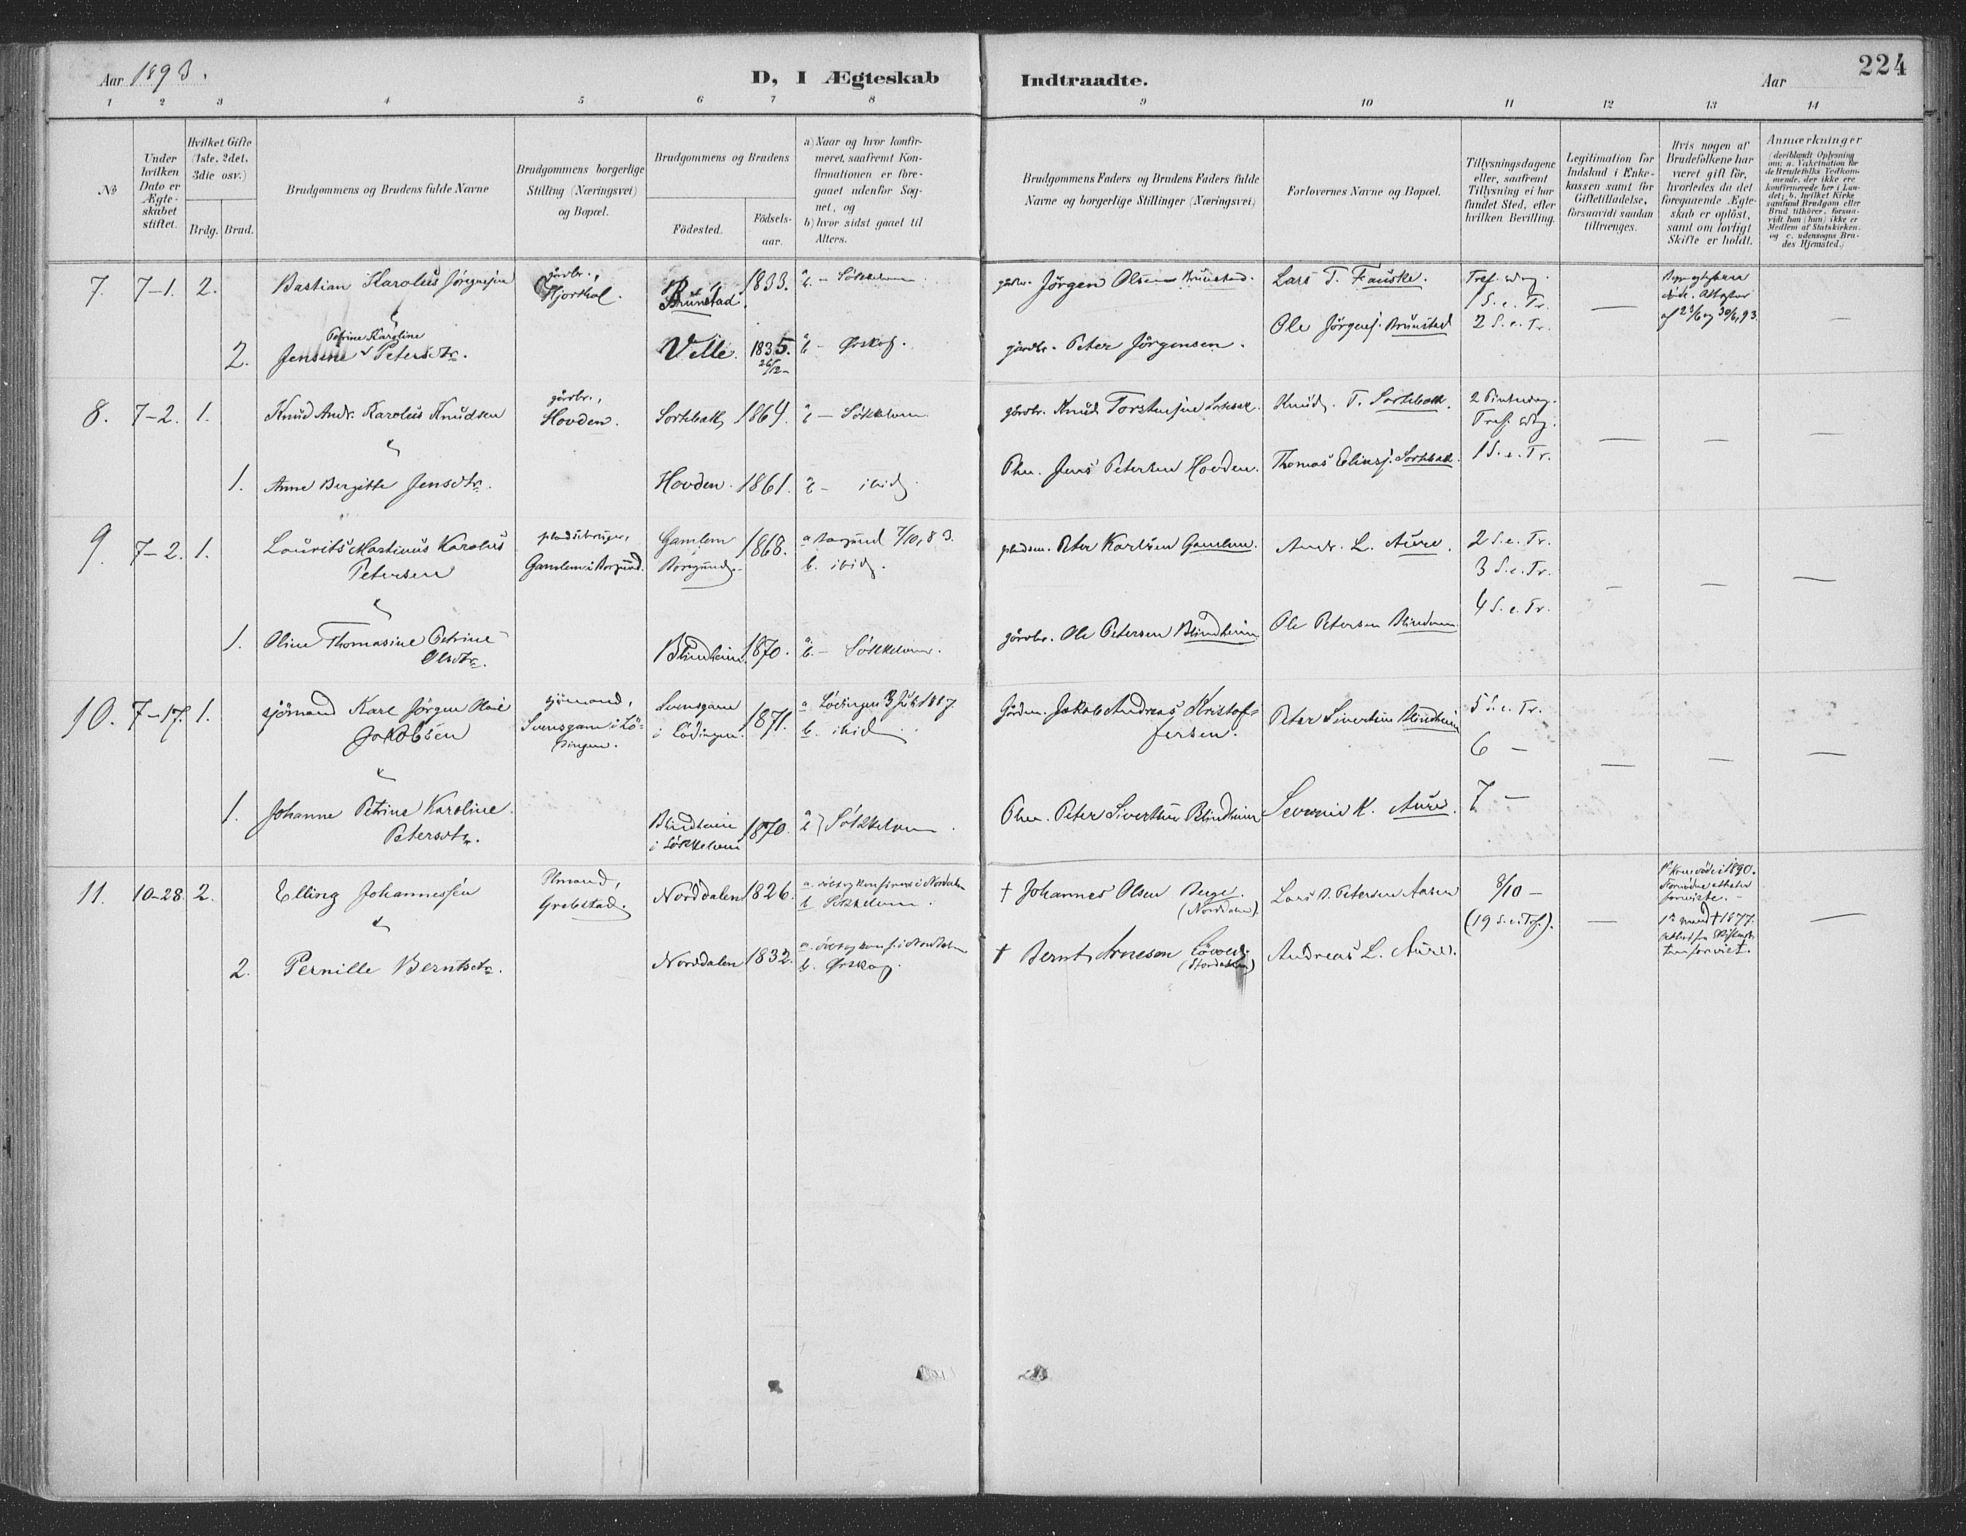 Aar 1893.
D, I Ægteskab
Indtraadte.
Aar
224
1 2 3 4 5 6 7 8 9 10 11 12 13 14
№
Under hvilken Dato er Ægteskabet stiftet.
Hvilket Gifte (1ste, 2det, 3die osv.)
Brdg. Brud.
Brudgommens og Brudens fulde Navne
Brudgommens borgerlige Stilling (Næringsvei) og Bopæl.
Brudgommens og Brudens
Fødested.
Fødselsaar.
a) Naar og hvor konfirmeret, saafremt Konfirmationen er foregaaet udenfor Sognet, og
b) hvor sidst gaaet til Alters.
Brudgommens Faders og Brudens Faders fulde Navne og borgerlige Stillinger (Næringsvei)
Forlovernes Navne og Bopæl.
Tillysningsdagene eller, saafremt Tillysning ei har fundet Sted, efter hvilken Bevilling.
Legitimation for Indskud i Enkekassen samt for Giftetilladelse, forsaavidt saadan tiltrænges.
Hvis nogen af Brudefolkene har været gift før, hvorledes da det foregaaende Ægteskab er opløst, samt om lovligt Skifte er holdt.
Anmærkninger
(deriblandt Oplysning om: a. Vakcination for de Brudefolks Vedkommende, der ikke ere konfirmerede her i Landet; b. hvilket Kirkesamfund Brudgom eller Brud tilhører, forsaavidt han (hun) ikke er Medlem af Statskirken, og c. udensogns Brudes Hjemsted.)
7. 7-1. 2. Bastian Karolus Jørgensen gårdbr., Hjorthol. Brunstad 1833. a b – Søkkelven. gårdbr. Jørgen Olsen Brunstad. Lars T. Fauske. 1 S. e. Tr.
2. Petrine Karoline
Jensine Petersdtr. Velle 1835. 26/12 a b – Ørskog. gårdbr. Peter Jørgensen. Ole Jørgens. Brunstad 2 S. e. Tr. –
8. 7-2. 1. Knud Andr. Karolus Knudsen gårdbr., Hovden. Sortebak 1864. a b – Søkkelven gårdbr. Knud Torstensen Sortebak. Knud T. Sortebak. 2 Pintsedag.
1. Anne Birgitte Jensdtr. Hovden. 1861. a b – ibid. Jens Petersen Hovden. Thomas Eliass. Sortebak. 1 S. e. Tr. – – –
9. 7-2. 1. Laurits Martinus Karolus Petersen pladsebruger, Gamlem i Borgund. Gamlem Borgund. 1868. a Borgund 7/10, 83. b. ibid. pladsm. Peter Karlsen Gamlem. Andr. L. Aure. 2 S. e. Tr.
3 S. e. Tr. – – –
1. Oline Thomasine Petrine Olsdtr. Blindheim 1870. a b. – Søkkelven. gårdbr. Ole Petersen Blindheim Ole Petersen Blindheim 4 S. e. Tr.
10. 7-17. 1. sjömand Karl Jørgen Jakobsen sjömand, Svensgam i Lödingen. Svensgam i Lödingen. 1871. a. Lödingen 3 Juli 1887. b. ibid. Gårdm. Jakob Andreas Kristoffersen. Peter Sivertsen Blindheim 5 S. e. Tr.
6 – – – –
1. Johanne Petrine Karoline Petersdtr. Blindheim i Søkkelven 1870. a b } Søkkelven. Peter Sivertsen Blindheim Severin K. Aure. 7 –
11. 10-28. 2. Elling Johannessen Grebstad. Norddalen 1826. b Søkkelven. † Johannes Olsen Berge. (Norddalen). Lars B. Petersen Aasen 8/10 – (19 S. e. Tref.). – –
2. Pernille Berntsdtr. Norddalen 1832. b. Ørskog. † Bernt Arneson Andreas L. Aure. 1ste mand † 1877.